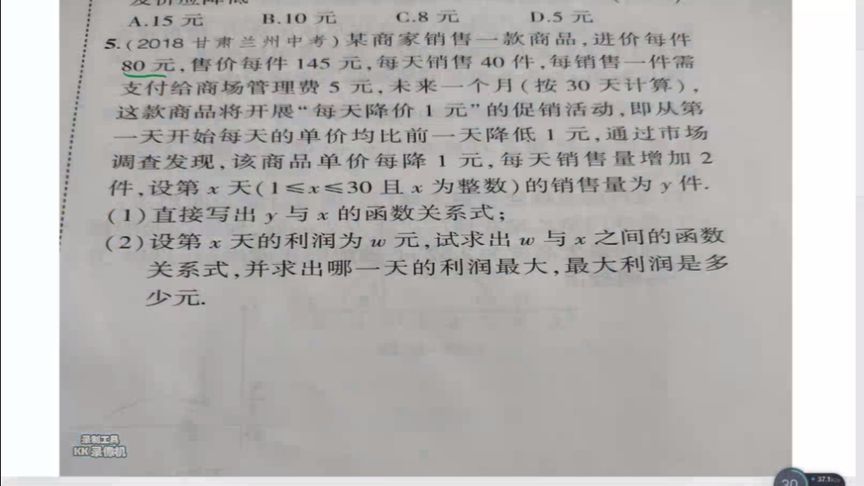 发价应降低
A.15 元 B.10 元 C.8 元 D.5 元
5.(2018 甘肃兰州中考)某商家销售一款商品,进价每件
80 元,售价每件 145 元,每天销售 40 件,每销售一件需
支付给商场管理费 5 元,未来一个月(按 30 天计算),
这款商品将开展“每天降价 1 元”的促销活动,即从第
一天开始每天的单价均比前一天降低 1 元,通过市场
调查发现,该商品单价每降 1 元,每天销售量增加 2
件,设第 x 天(1≤x≤30 且 x 为整数)的销售量为 y 件.
(1)直接写出 y 与 x 的函数关系式;
(2)设第 x 天的利润为 w 元,试求出 w 与 x 之间的函数
关系式,并求出哪一天的利润最大,最大利润是多
少元.
录制工具
KK 录像机
30